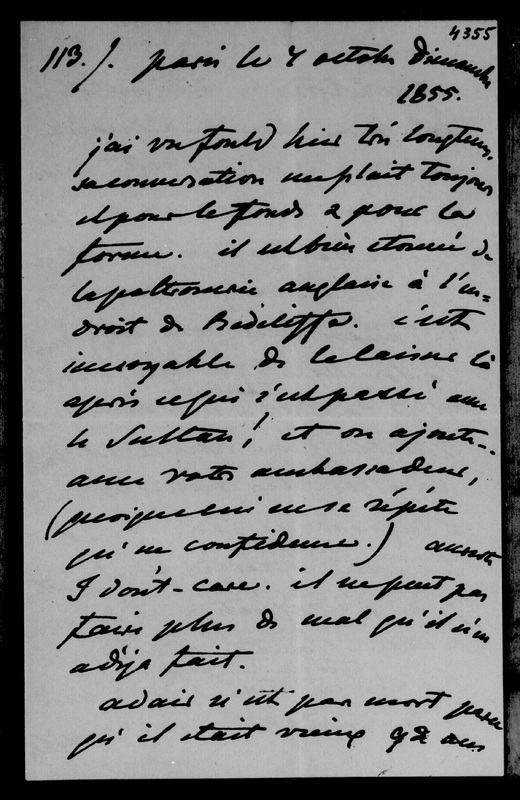 4355
113. /. paris le 7 octobre dimanche
1855.
j'ai vu fould hier très longtems.
sa conversation me plait toujours
et pour le fonds & pour la
forme. il est bien etonné de
la poltronnerie anglaise à l'en=
droit de Redcliffe. c'est
incroyable de le laisser là
après ce qui s'est passé avec
le Sultan! et on ajoute..
avec votre ambassadeur,
(quoique ceci ne se répète
qu'en confidence.) au reste
I don't-care. il ne peut pas
faire plus de mal qu'il n'en
a déja fait.
adair n'est pas mort parce
qu'il était vieux 92 ans